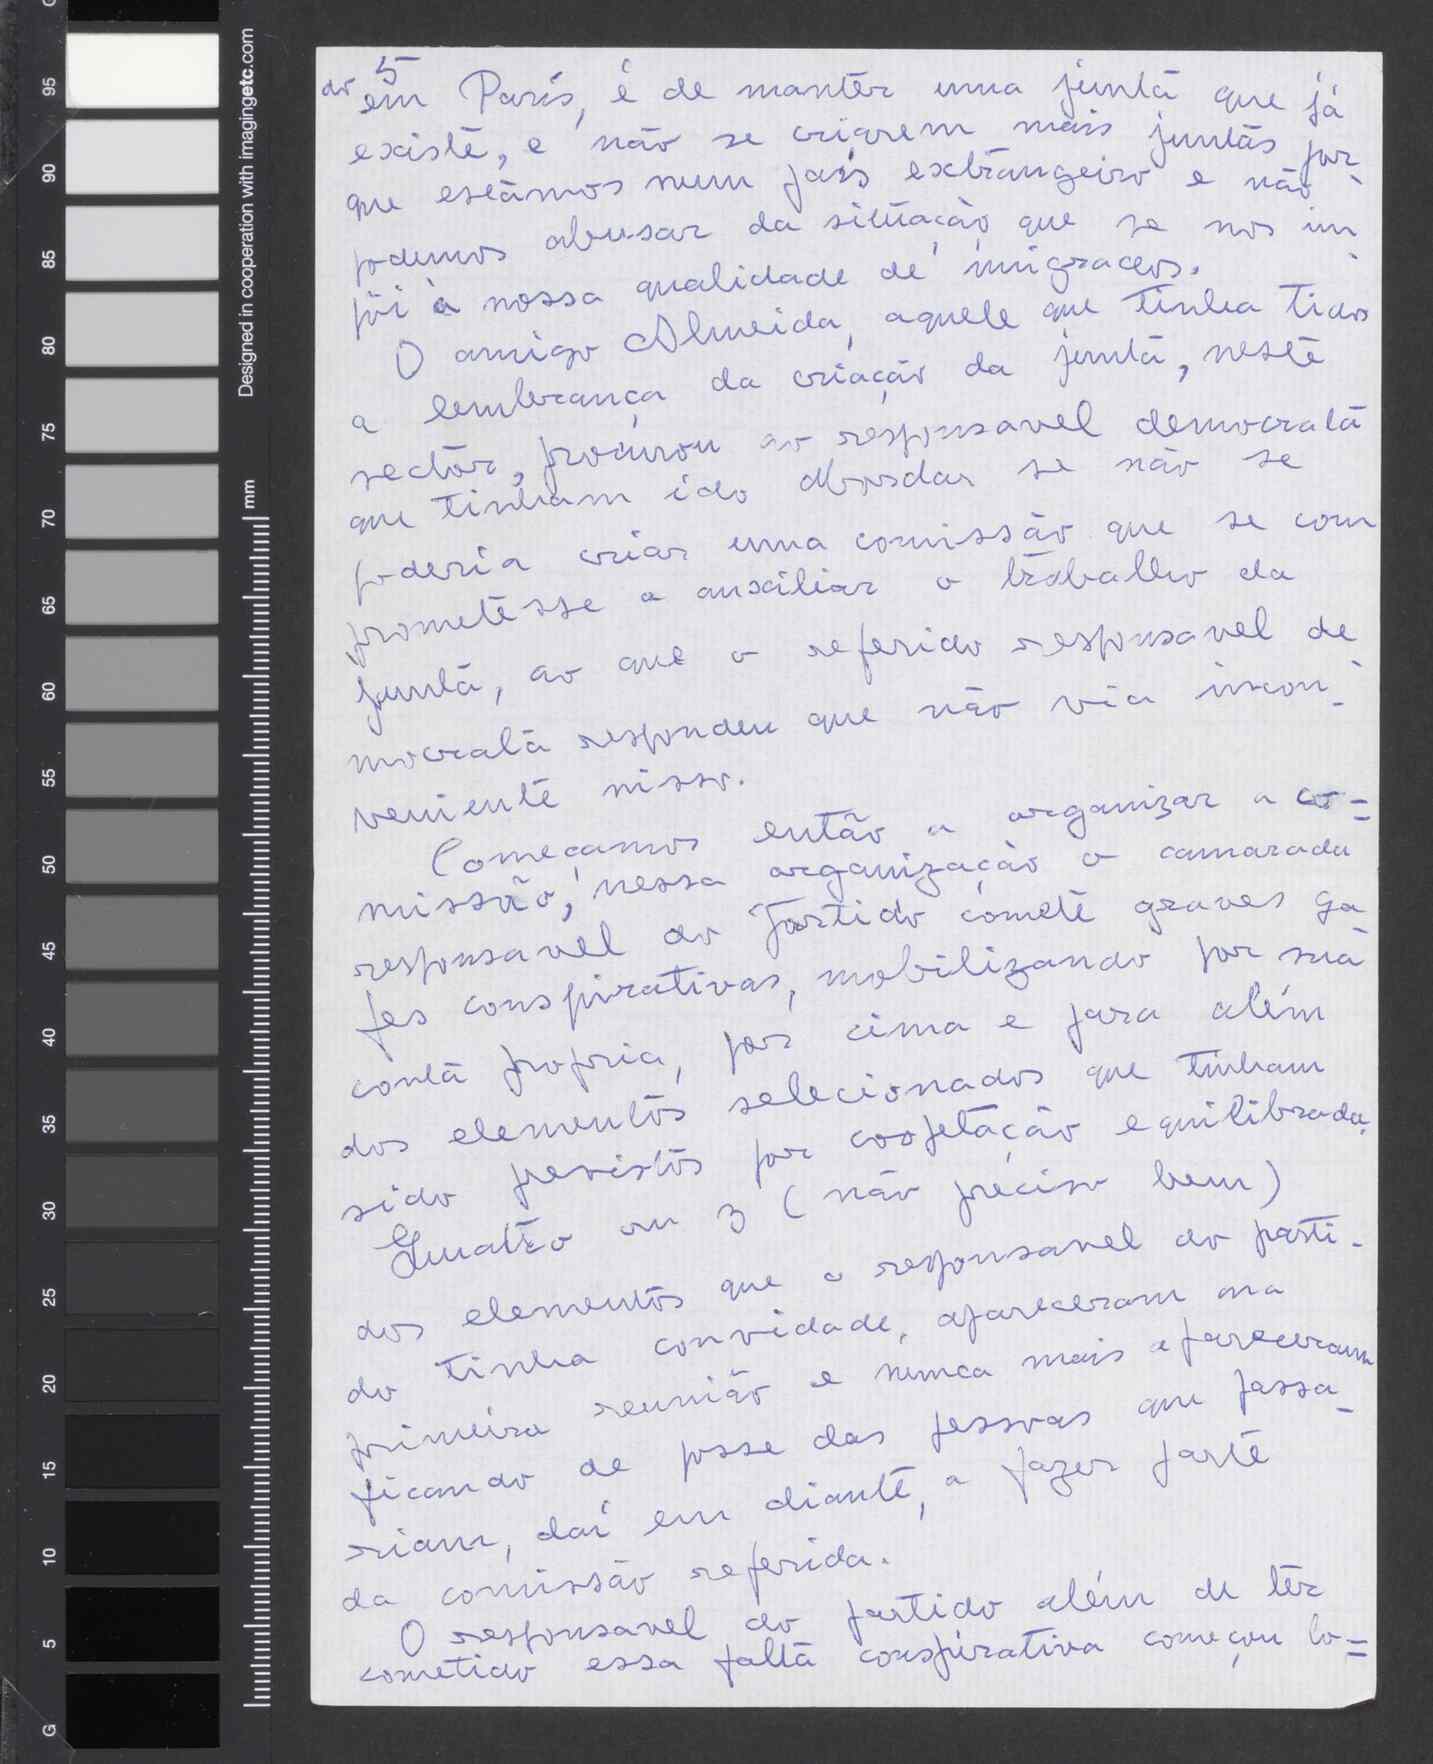 5
do em París, é de mantêr uma junta que já
existe, e não se criarem mais juntas por-
que estâmos num país extrangeiro e não
podemos abusar da situação que se nos im-
pôi à nossa qualidade de imigrados.
O amigo Almeida, aquele que tinha tido
a lembrança da criação da junta, neste
sectôr, procurou ao responsavel democrata
que tinham ido abordar se não se
poderia criar uma comissão que se com
prometêsse a auxiliar o trabalho da
junta, ao que o referido responsavel de
mocrata respondeu que não via incon-
veniente nisso.
Começamos então a organizar a co=
missão, nessa organização o camarada
responsavel do Partido comete graves ga
fes conspirativas, mobilizando por sua
conta propria, por cima e para além
dos elementos selecionados que tinham
sido previstos por cooptação equilibrada.
Quatro ou 3 (não préciso bem)
dos elementos que o responsavel do parti-
do tinha convidade, apareceram na
primeira reunião e nunca mais apareceram
ficando de posse das pessoas que passa-
riam, daí em diante, a fazer parte
da comissão referida.
O responsavel do partido além de têr
cometido essa falta conspirativa começou lo=
Designed in cooperation with imagingetc.com
mm
95
90
85
80
75
70
65
60
55
50
45
40
35
30
25
20
15
10
5
G